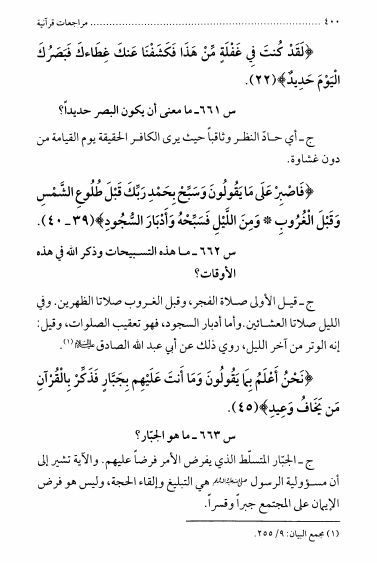 ٤٠٠ ........................................ مراجعات قرآنية
﴿لَقَدْ كُنتَ فِي غَفْلَةٍ مِّنْ هَذَا فَكَشَفْنَا عَنكَ غِطَاءكَ فَبَصَرُكَ
الْيَوْمَ حَدِيدٌ﴾(٢٢).
س ٦٦١ـ ما معنى أن يكون البصر حديداً؟
ج ـ أي حادّ النظر وثاقباً حيث يرى الكافر الحقيقة يوم القيامة من
دون غشاوة.
﴿فَاصْبِرْ عَلَى مَا يَقُولُونَ وَسَبِّحْ بِحَمْدِ رَبِّكَ قَبْلَ طُلُوعِ الشَّمْسِ
وَقَبْلَ الْغُرُوبِ * وَمِنَ اللَّيْلِ فَسَبِّحْهُ وَأَدْبَارَ السُّجُودِ﴾(٣٩ـ٤٠).
س ٦٦٢ـ مـا هذه التسبيحات وذكر الله في هذه
الأوقات؟
ج ـ قيـل الأولى صلاة الفجر، وقبل الغروب صلاتا الظهرين. وفي
الليل صلاتا العشائين. وأما أدبار السجود، فهو تعقيب الصلوات، وقيل:
إنه الوتر من آخر الليل، روي ذلك عن أبي عبد الله الصادق (١).
﴿نَحْنُ أَعْلَمُ بِمَا يَقُولُونَ وَمَا أَنتَ عَلَيْهِم بِجَبَّارٍ فَذَكِّرْ بِالْقُرْآنِ
مَن يَخَافُ وَعِيدِ﴾(٤٥).
س ٦٦٣ـ ما هو الجبّار؟
ج ـ الجبّار المتسلّط الذي يفرض الأمر فرضاً عليهم. والآية تشير إلى
أن مسؤولية الرسول هي التبليغ وإلقاء الحجة، وليس هو فرض
الإيمان على المجتمع جبراً وقسراً.
(١) مجمع البيان: ٩/ ٢٥٥.